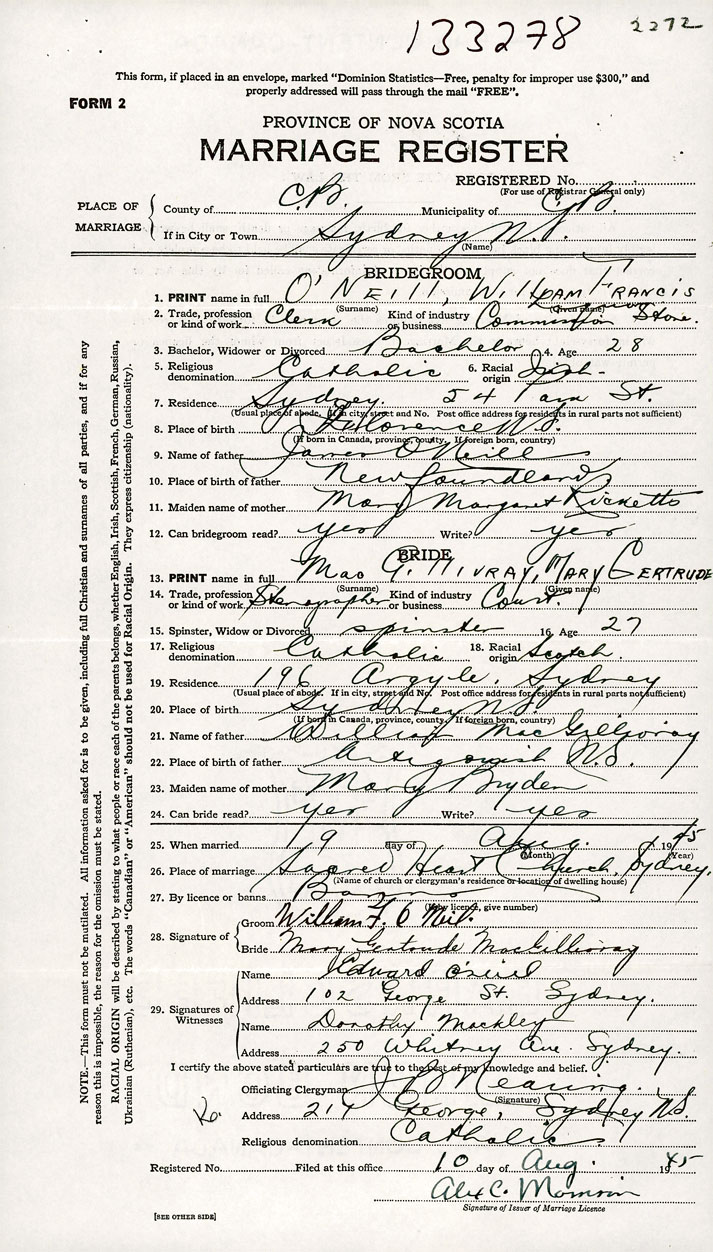 133278
2272
This form, if placed in an envelope, marked "Dominion Statistics—Free, penalty for improper use $300," and
properly addressed will pass through the mail "FREE".
FORM 2
PROVINCE OF NOVA SCOTIA
MARRIAGE REGISTER
REGISTERED No.
(For use of Registrar General only)
PLACE OF MARRIAGE
County of C.B. Municipality of C.B.
If in City or Town Sydney N.S.
(Name)
BRIDEGROOM
1. PRINT name in full O'NEILL, WILLIAM FRANCIS
(Surname) (Given name)
2. Trade, profession or kind of work Clerk Kind of industry or business Commission Store.
3. Bachelor, Widower or Divorced Bachelor 4. Age 28
5. Religious denomination Catholic 6. Racial origin Irish
7. Residence Sydney. 54 St.
(Usual place of abode. If in city, street and No. Post office address for residents in rural parts not sufficient)
8. Place of birth Florence N.S.
(If born in Canada, province, county. If foreign born, country)
9. Name of father James O'Neill
10. Place of birth of father Newfoundland
11. Maiden name of mother Mary Margaret Ricketts
12. Can bridegroom read? yes Write? yes
BRIDE
13. PRINT name in full Mac GILLIVRAY, MARY GERTRUDE
(Surname) (Given name)
14. Trade, profession or kind of work Stenographer Kind of industry or business Court.
15. Spinster, Widow or Divorced spinster 16. Age 27
17. Religious denomination Catholic 18. Racial origin Scotch.
19. Residence 196 Argyle, Sydney
(Usual place of abode. If in city, street and No. Post office address for residents in rural parts not sufficient)
20. Place of birth Sydney N.S.
(If born in Canada, province, county. If foreign born, country)
21. Name of father William MacGillivray
22. Place of birth of father Antigonish N.S.
23. Maiden name of mother Mary Bryden
24. Can bride read? yes Write? yes
25. When married 9 day of Aug. 1945
(Month) (Year)
26. Place of marriage Sacred Heart Church, Sydney,
(Name of church or clergyman's residence or location of dwelling house)
27. By licence or banns Banns
(If by licence, give number)
28. Signature of
Groom William F. O'Neil.
Bride Mary Gertrude MacGillivray
29. Signatures of Witnesses
Name Edward O'Neil
Address 102 George St. Sydney.
Name Dorothy Mackley
Address 250 Whitney Ave. Sydney.
I certify the above stated particulars are true to the best of my knowledge and belief.
Officiating Clergyman J B Nearing.
(Signature)
Address 214 George, Sydney N.S.
Religious denomination Catholic
Registered No. Filed at this office 10 day of Aug. 1945
Alex C. Morrison
Signature of Issuer of Marriage Licence
[SEE OTHER SIDE]
NOTE.—This form must not be mutilated. All information asked for is to be given, including full Christian and surnames of all parties, and if for any
reason this is impossible, the reason for the omission must be stated.
RACIAL ORIGIN will be described by stating to what people or race each of the parents belongs, whether English, Irish, Scottish, French, German, Russian,
Ukrainian (Ruthenian), etc. The words "Canadian" or "American" should not be used for Racial Origin. They express citizenship (nationality).